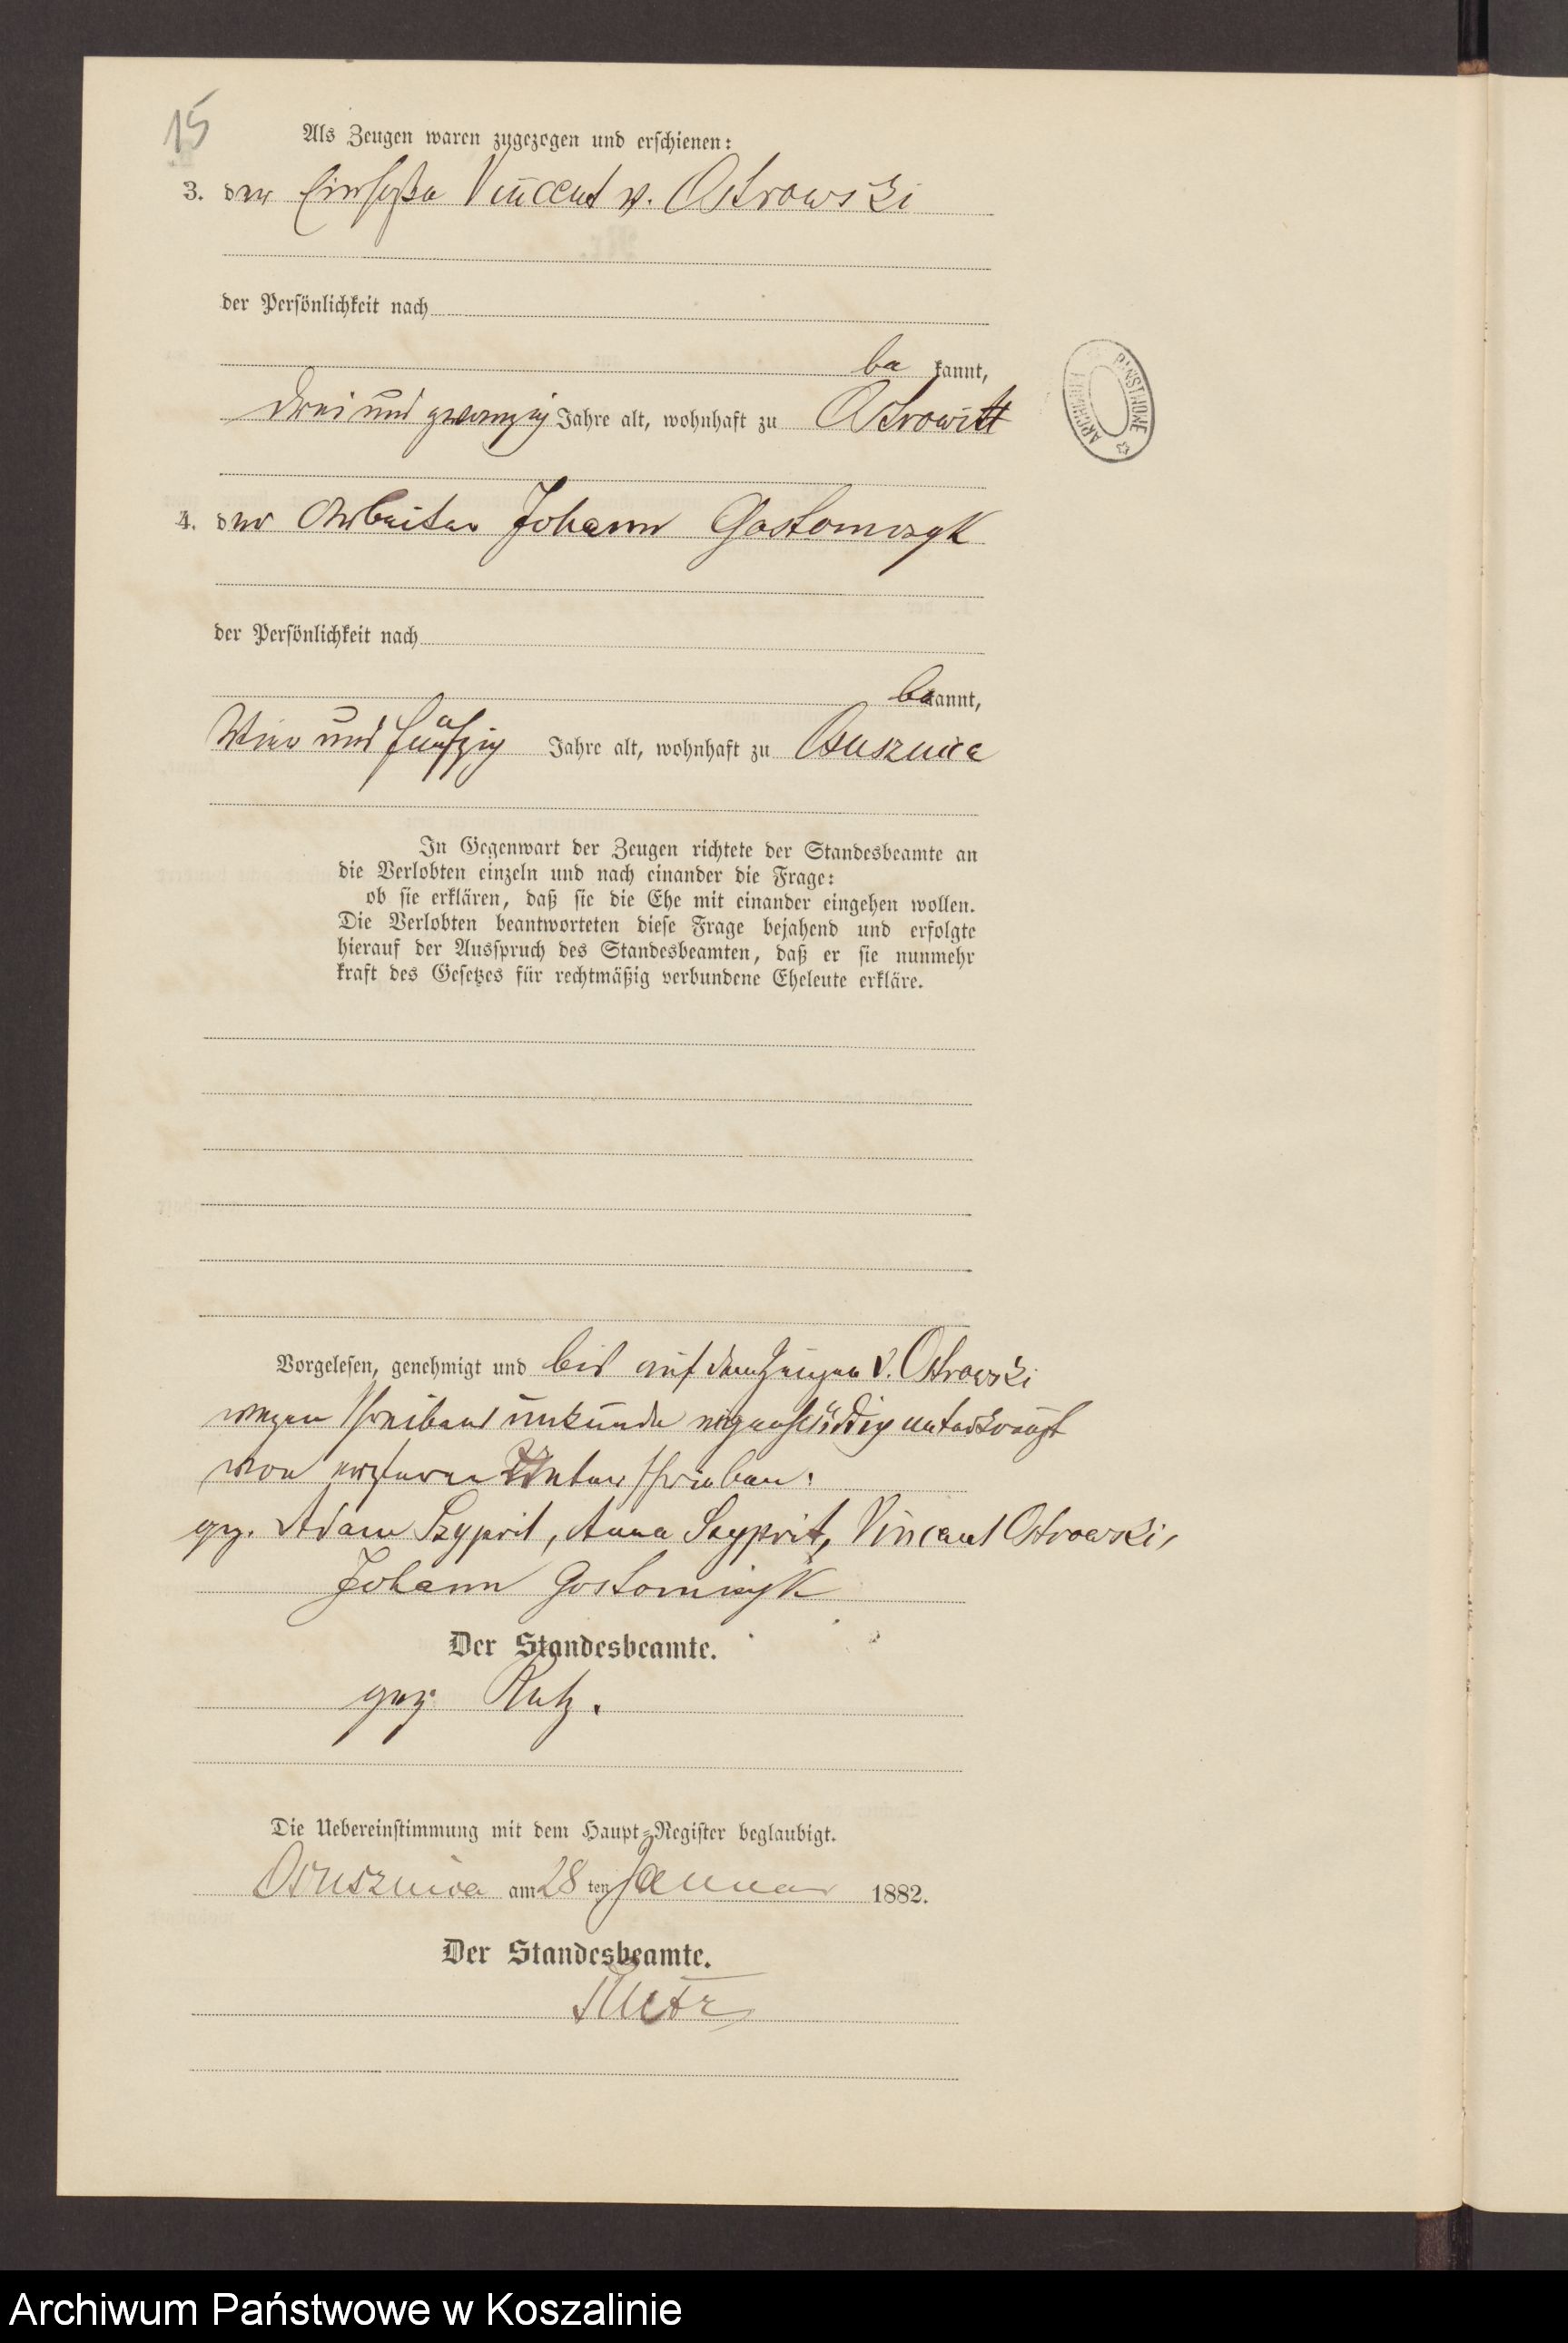 15
Als Zeugen waren zugezogen und erschienen:
3. der Einsasse Vincent v. Ostrowski
der Persönlichkeit nach
be kannt,
drei und zwanzig Jahre alt, wohnhaft zu Ostrowitt
4. der Arbeiter Johann Gostomczyk
der Persönlichkeit nach
bekannt,
Vier und fünfzig Jahre alt, wohnhaft zu Ossusznica
In Gegenwart der Zeugen richtete der Standesbeamte an
die Verlobten einzeln und nach einander die Frage:
ob sie erklären, daß sie die Ehe mit einander eingehen wollen.
Die Verlobten beantworteten diese Frage bejahend und erfolgte
hierauf der Ausspruch des Standesbeamten, daß er sie nunmehr
kraft des Gesetzes für rechtmäßig verbundene Eheleute erkläre.
Vorgelesen, genehmigt und bis auf den Zeugen v. Ostrowski
wegen Schreibens unkunde eigenhändig unterkreuzt
von ersteren Unterschrieben:
gez. Adam Szyprit, Anna Szyprit, Vincent Ostrowski,
Johann Gostomczyk
Der Standesbeamte.
gez. Rutz.
Die Uebereinstimmung mit dem Haupt-Register beglaubigt.
Ossusznica am 28 ten Januar 1882.
Der Standesbeamte.
Rutz
ARCHIWUM PAŃSTWOWE
Archiwum Państwowe w Koszalinie